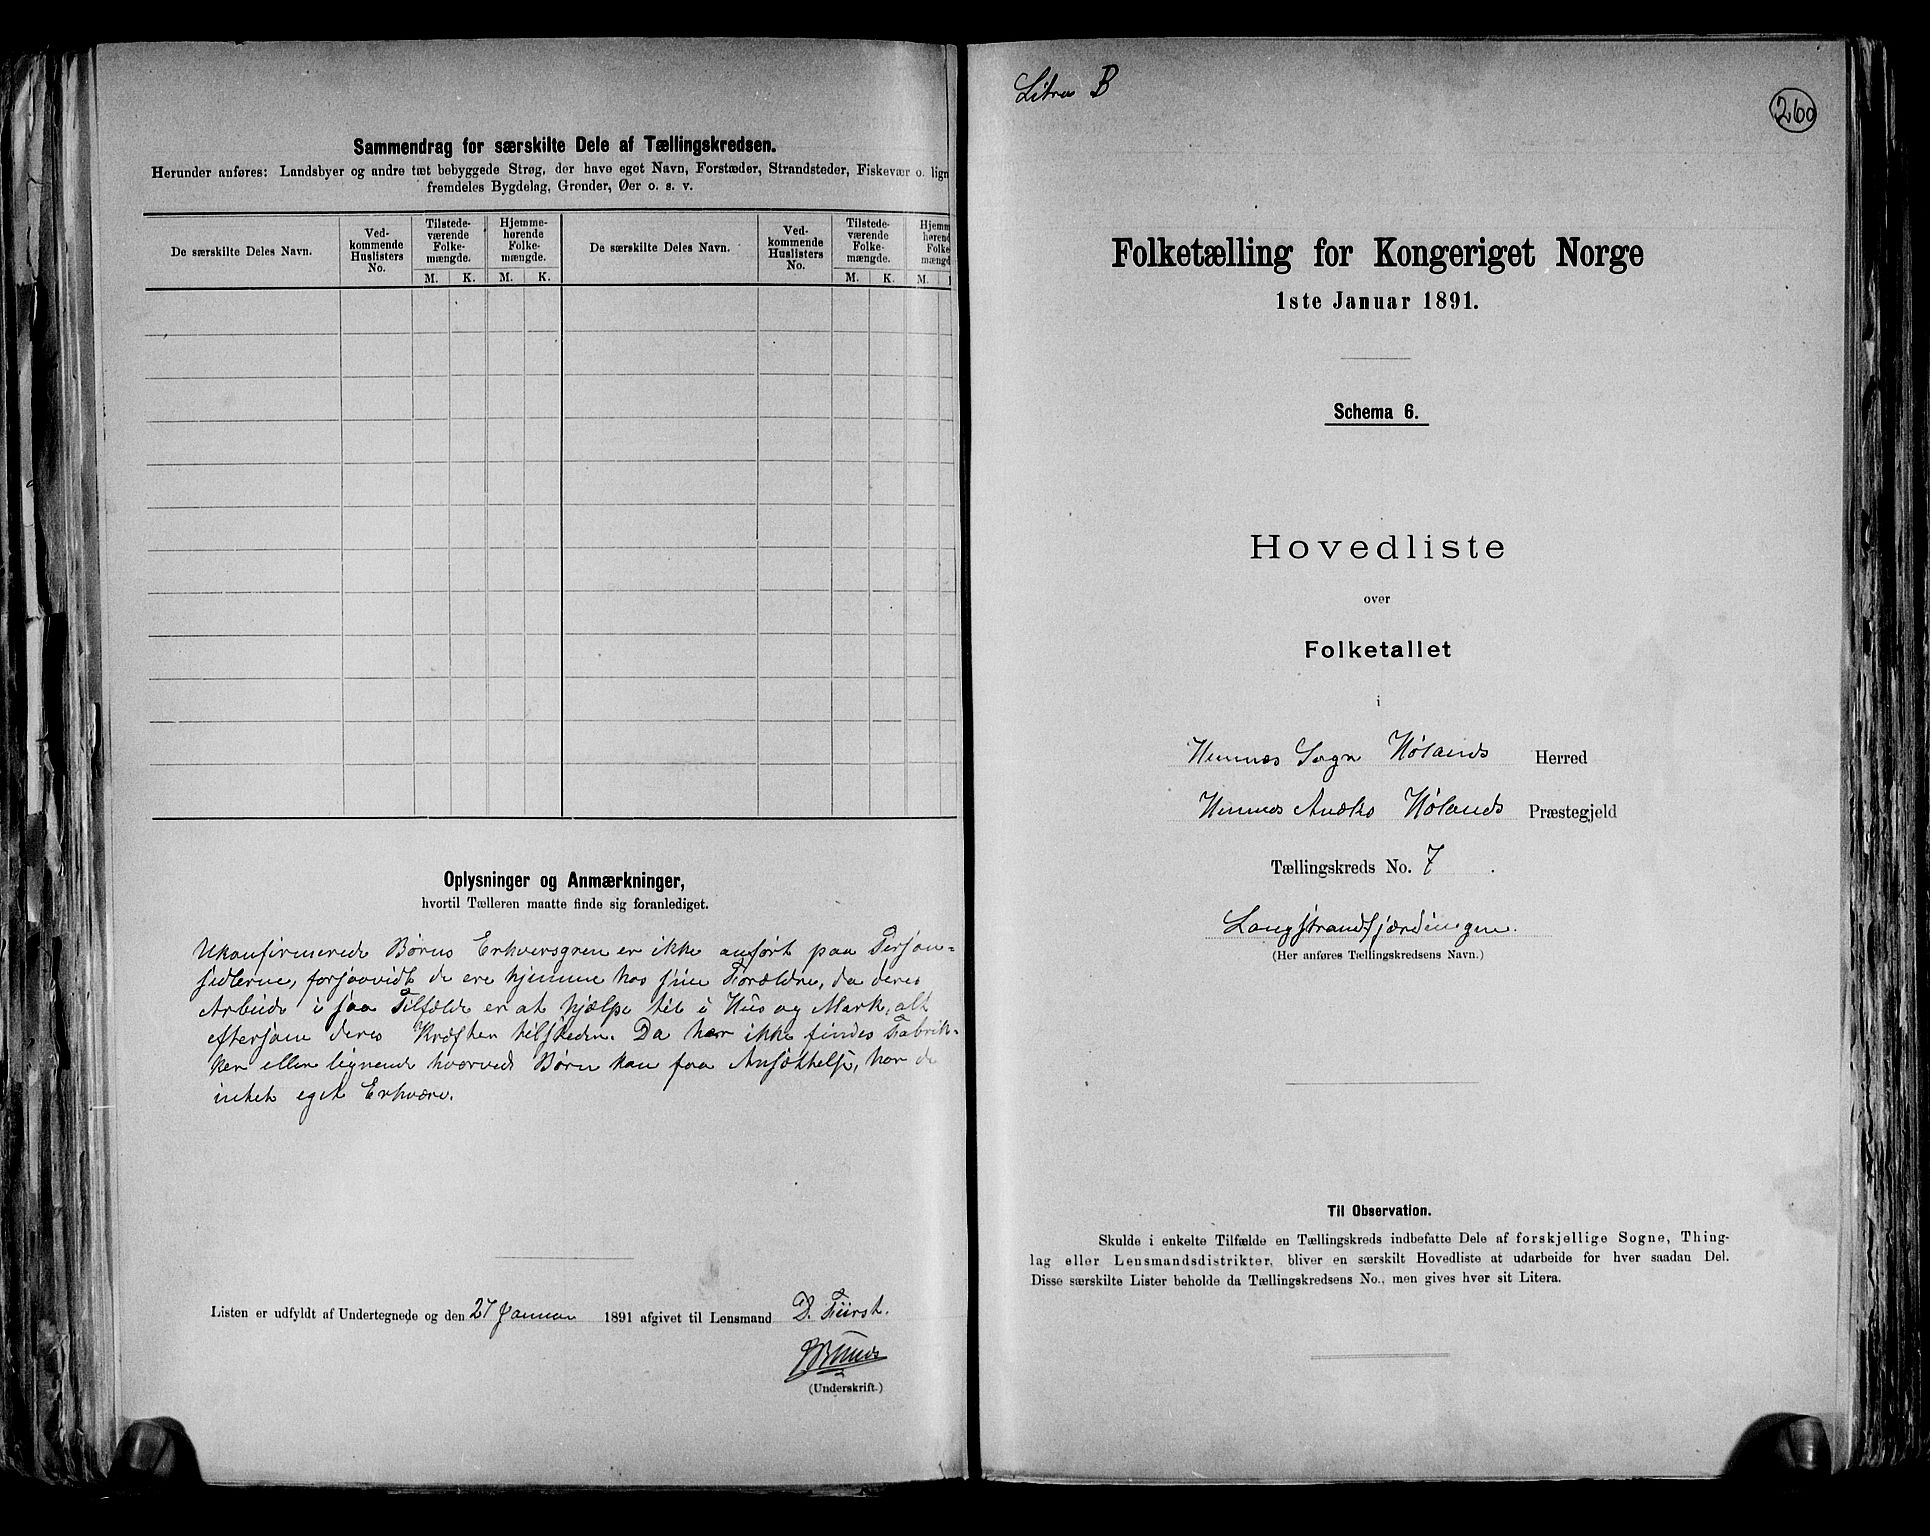 Sammendrag for særskilte Dele af Tællingskredsen.
Herunder anføres: Landsbyer og andre tæt bebyggede Strøg, der have eget Navn, Forstæder, Strandsteder, Fiskevær o. lign
fremdeles Bygdelag, Grender, Øer o. s. v.
De særskilte Deles Navn.
Ved-
kommende
Huslisters
No.
Tilstede-
værende
Folke-
mængde.
M. K.
Hjemme-
hørende
Folke-
mængde.
M. K.
De særskilte Deles Navn.
Ved-
kommende
Huslisters
No.
Tilstede-
værende
Folke-
mængde.
M. K.
Hjemm
høren
Folke
mængd
M.
Oplysninger og Anmærkninger,
hvortil Tælleren maatte finde sig foranlediget.
Ukonfirmerede Børns Erhversgren er ikke anført paa Person-
sidlerne, forsaavidt de ere hjemme hos sine Forældre, da deres
Arbeide i saa Tilfælde er at hjælpe til i Hus og Mark, alt
eftersom deres Kræfter tilsteder. Da her ikke findes Fabrik-
ker eller lignende hvorved Børn kan faa Ansættelse, har de
intet eget Erhverv.
Listen er udfyldt af Undertegnede og den 27 Januar 1891 afgivet til Lensmand D. Fürst.
(Underskrift.)
Litra B
260
Folketælling for Kongeriget Norge
1ste Januar 1891.
Schema 6.
Hovedliste
over
Folketallet
i
Hemnæs Sogn Hølands Herred
Hemnes Hølands Præstegjeld
Tællingskreds No. 7.
Langstrandfjærdingen.
(Her anføres Tællingskredsens Navn.)
Til Observation.
Skulde i enkelte Tilfælde en Tællingskreds indbefatte Dele af forskjellige Sogne, Thing-
lag eller Lensmandsdistrikter, bliver en særskilt Hovedliste at udarbeide for hver saadan Del.
Disse særskilte Lister beholde da Tællingskredsens No., men gives hver sit Litera.